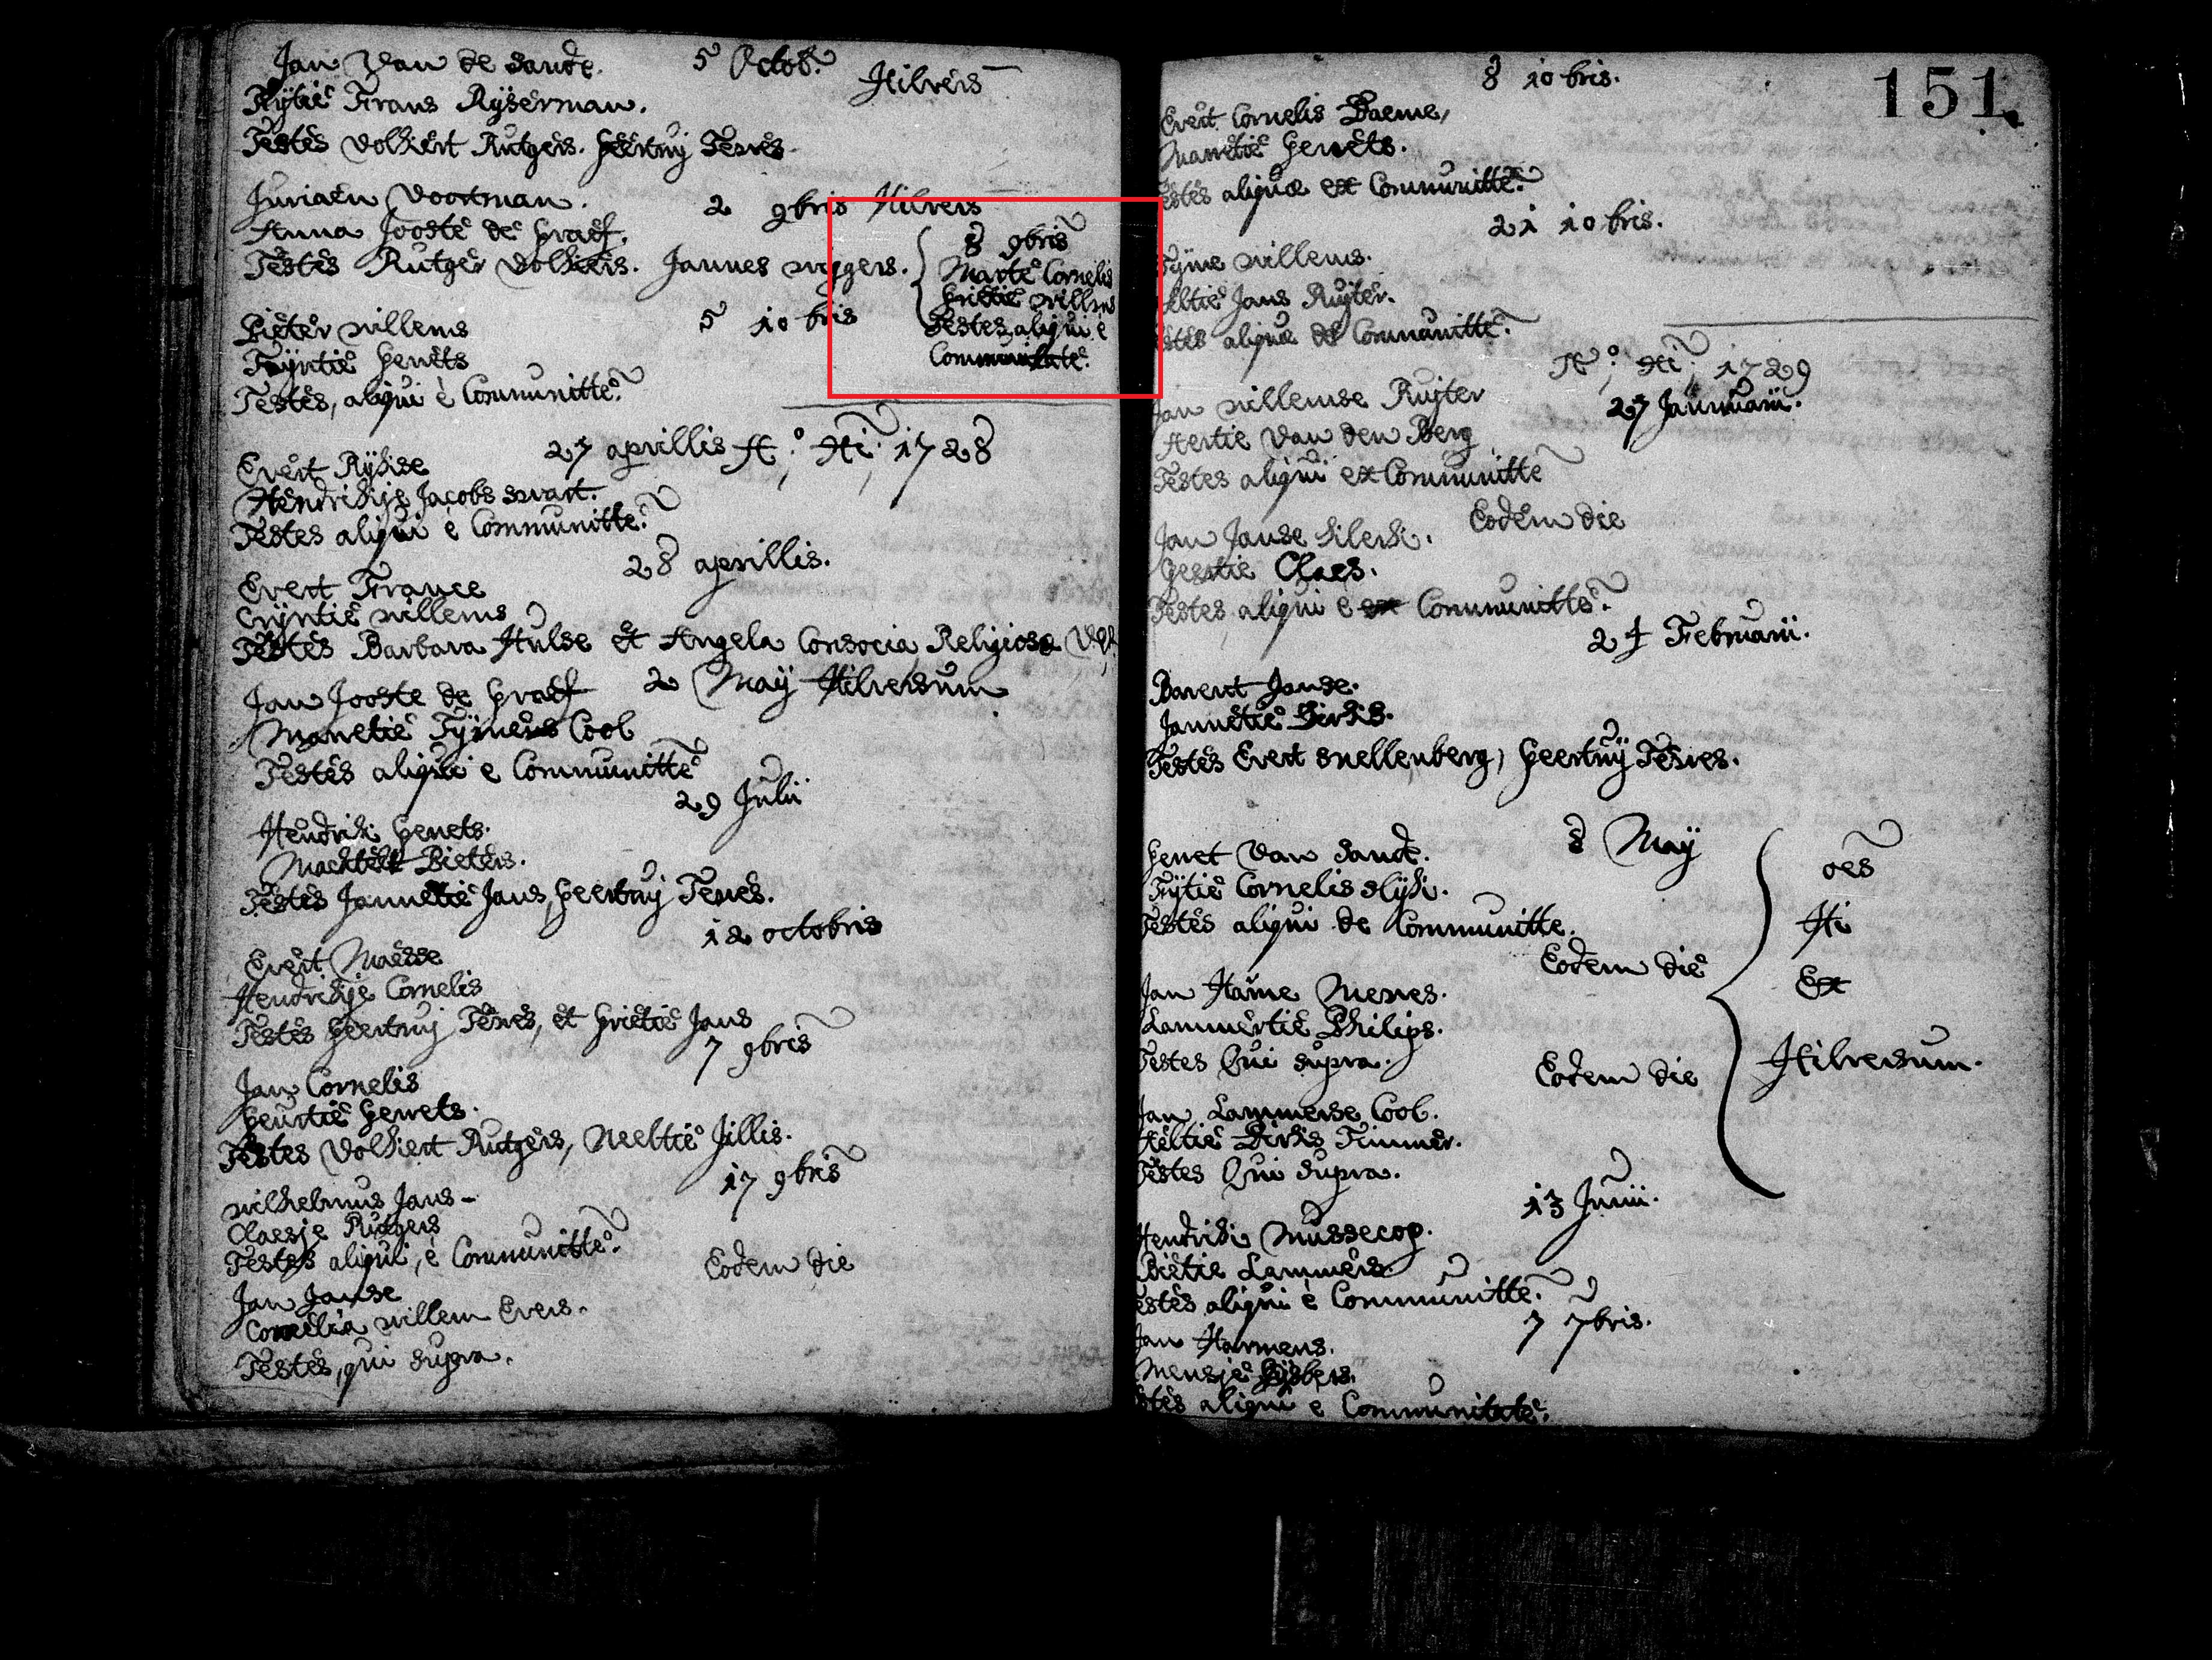 Jan Van de Sande. 5 Octob. Hilvers
Frans Ryserman.
Testes Volkert Rutgers. Geertruy Teuwes.
Juriaen Voortman. 2 9bris Hilvers
Anna Jooste de Graef.
Testes Rutger Volkers. Jannes
8 9bris
Marte Cornelis
Grietie Willms
Testes aliqui e
Communitate.
Pieter Willems 5 10 bris
Tryntie Gerrets
Testes, aliqui è Communitte.
27 aprillis Ao. Ai. 1728
Evert Rykse
Hendrikje Jacobs Swart.
Testes aliqui è Communitte.
28 aprillis.
Evert France
Cryntie Willems
Testes Barbara Hulse et Angela Consocia Religiosa
Jan Jooste de Graef 2 May Hilversum
Marretie Tymens Cool
Testes aliqui e Communitte
29 Julii
Hendrik Gerrets.
Machtelt Pieters.
Testes Jannetie Jans, Geertruy Teuwes.
12 octobris
Evert
Hendrikje Cornelis
Testes Geertruy Teuwes, et Grietie Jans
7 9bris
Jan Cornelis
Geurtie Gerrets.
Testes Volkert Rutgers, Neeltie Jillis.
17 9bris
Wilhelmus Jans-
Claesje Rutgers
Testes aliqui, è Communitte.
Eodem die
Jan Janse
Cornelia Willem Evers.
Testes, qui supra.
151.
8 10 bris.
Evert Cornelis
Marretie Gerrets.
estes aliqui ex Communitte.
21 10 bris.
Tyme Willems.
Jans Ruyter.
estes aliqui de Communitte.
Ao. Ai. 1729
27 Januarii.
Jan Willemse Ruyter
Aertie Van den Berg
Testes aliqui ex Communitte
Eodem die
Jan Janse
Geertie Claes.
Testes aliqui e ex Communitte.
24 Februarii.
Barent Janse.
Jannetie Dirks.
Testes Evert Snellenberg, Geertruy Teuwes.
8 May
Gerret Van Sande.
Fytie Cornelis Slyk.
Testes aliqui de Communitte.
Eodem die
Jan Harme
Lammertie Philips.
Testes Qui supra.
Eodem die
Jan Lammerse Cool.
Dirks Timmer.
Testes Qui supra.
oes
Ai
Ex
Hilversum.
13 Junii.
Hendrik Mussecop.
Lammers.
estes aliqui è Communitte.
7 7bris.
Jan Harmens.
Mensje Gysbers.
aliqui e Communitate.